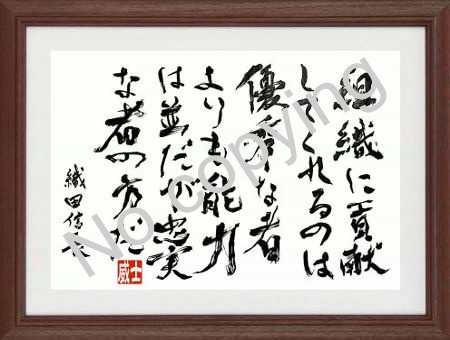 組織に貢献
してくれるのは
優秀な者
よりも能力
は並だが忠実
な者の方だ
織田信長
威士
No copying